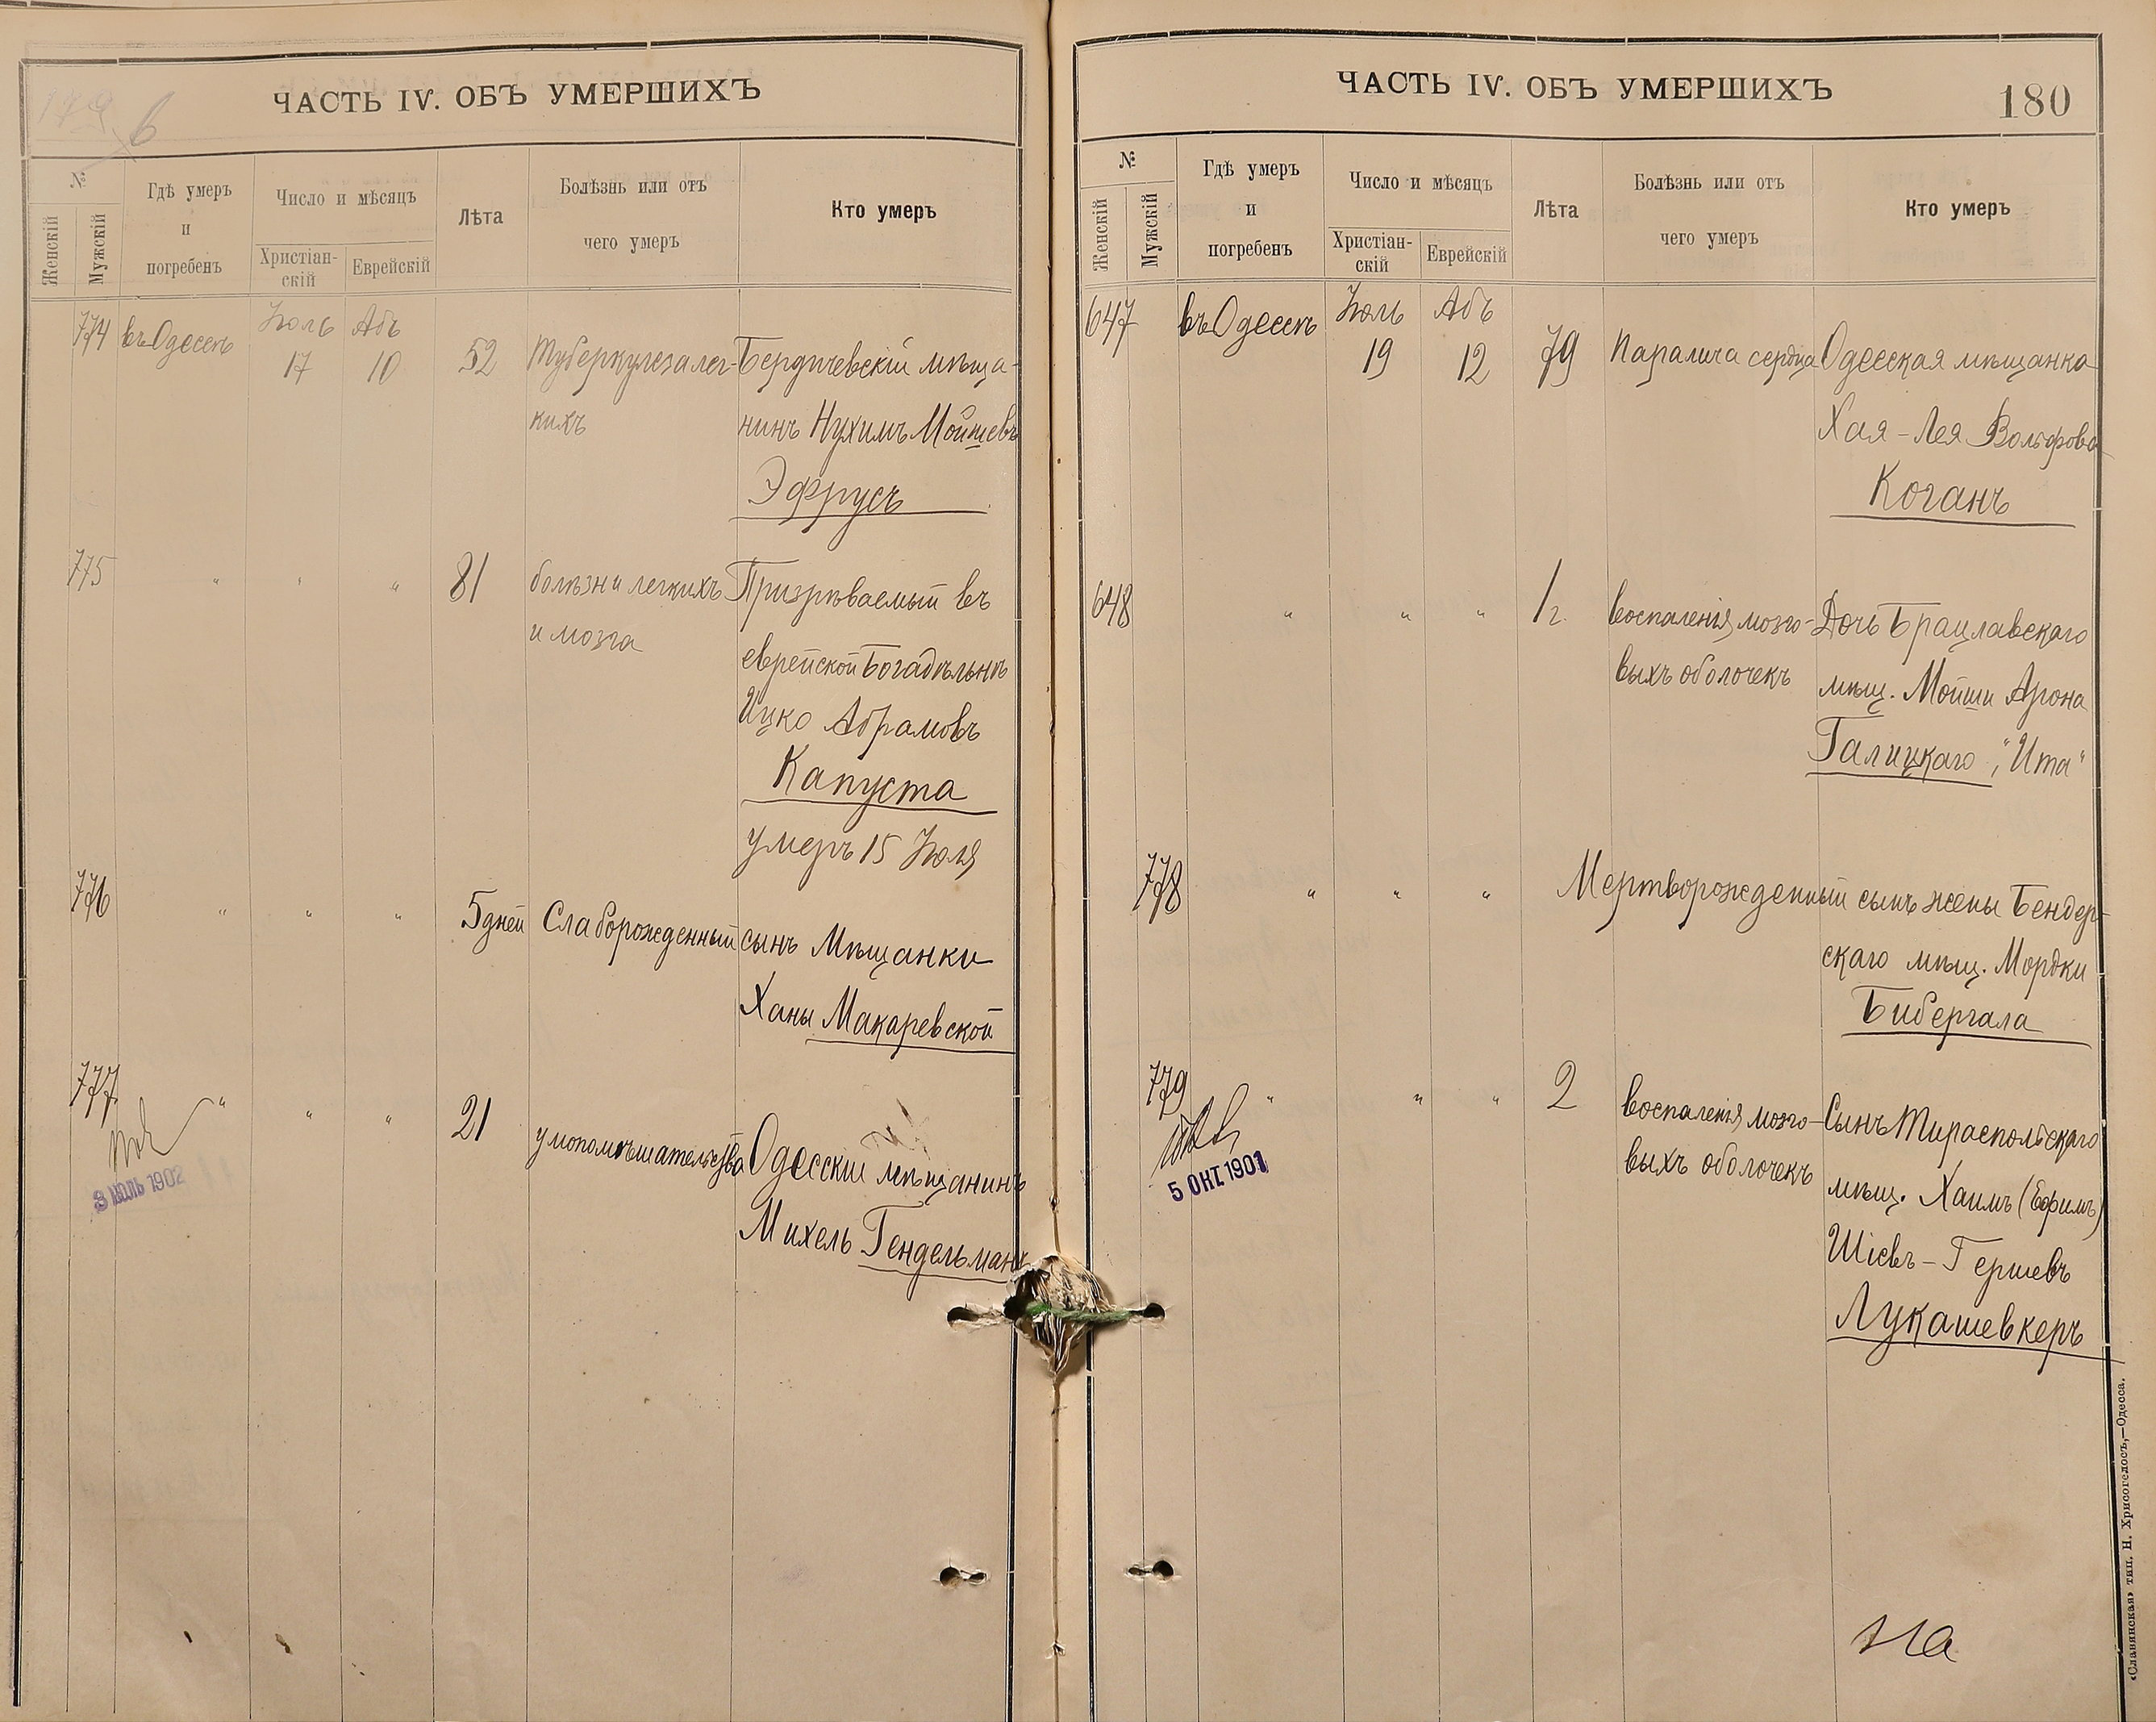 ЧАСТЬ IV. ОБЪ УМЕРШИХЪ
№
Женскій
Мужскій
Гдѣ умеръ
и
погребенъ
Число и мѣсяцъ
Христіан-
скій
Еврейскій
Лѣта
Болѣзнь или отъ
чего умеръ
Кто умеръ
774 въ Одессѣ Іюль Абъ
17 10 52 Туберкулеза лег- Бердичевскій мѣща-
кихъ нинъ Нухимъ Мойшевъ
Эфрусъ
775 " " " 81 болѣзни легкихъ Призрѣваемый въ
и мозга еврейской Богадѣльнѣ
Ицко Абрамовъ
Капуста
умеръ 15 Іюля
776 " " " 5 дней Слаборожденный сынъ Мѣщанки
Ханы Макаревской
777 " " " 21 умопомѣшательства Одесскій мѣщанинъ
Михель Гендельманъ
3 ІЮЛЬ 1902
ЧАСТЬ IV. ОБЪ УМЕРШИХЪ
180
№
Женскій
Мужскій
Гдѣ умеръ
и
погребенъ
Число и мѣсяцъ
Христіан-
скій
Еврейскій
Лѣта
Болѣзнь или отъ
чего умеръ
Кто умеръ
647 въ Одессѣ Іюль Абъ
19 12 79 Паралича сердца Одесская мѣщанка
Хая-Лея Вольфова
Коганъ
648 " " " 1 г. воспаленія мозго- Дочь Брацлавскаго
выхъ оболочекъ мѣщ. Мойши Арона
Галицкаго, "Ита"
778 " " " Мертворожденный сынъ жены Бендер-
скаго мѣщ. Мордки
Бибергала
779 " " " 2 воспаленія мозго- Сынъ Тираспольскаго
выхъ оболочекъ мѣщ. Хаимъ (Ефимъ)
Шіевъ-Гершевъ
Лукашевкеръ
5 ОКТ 1901
на
«Славянская» тип. Н. Хрисогелосъ,—Одесса.